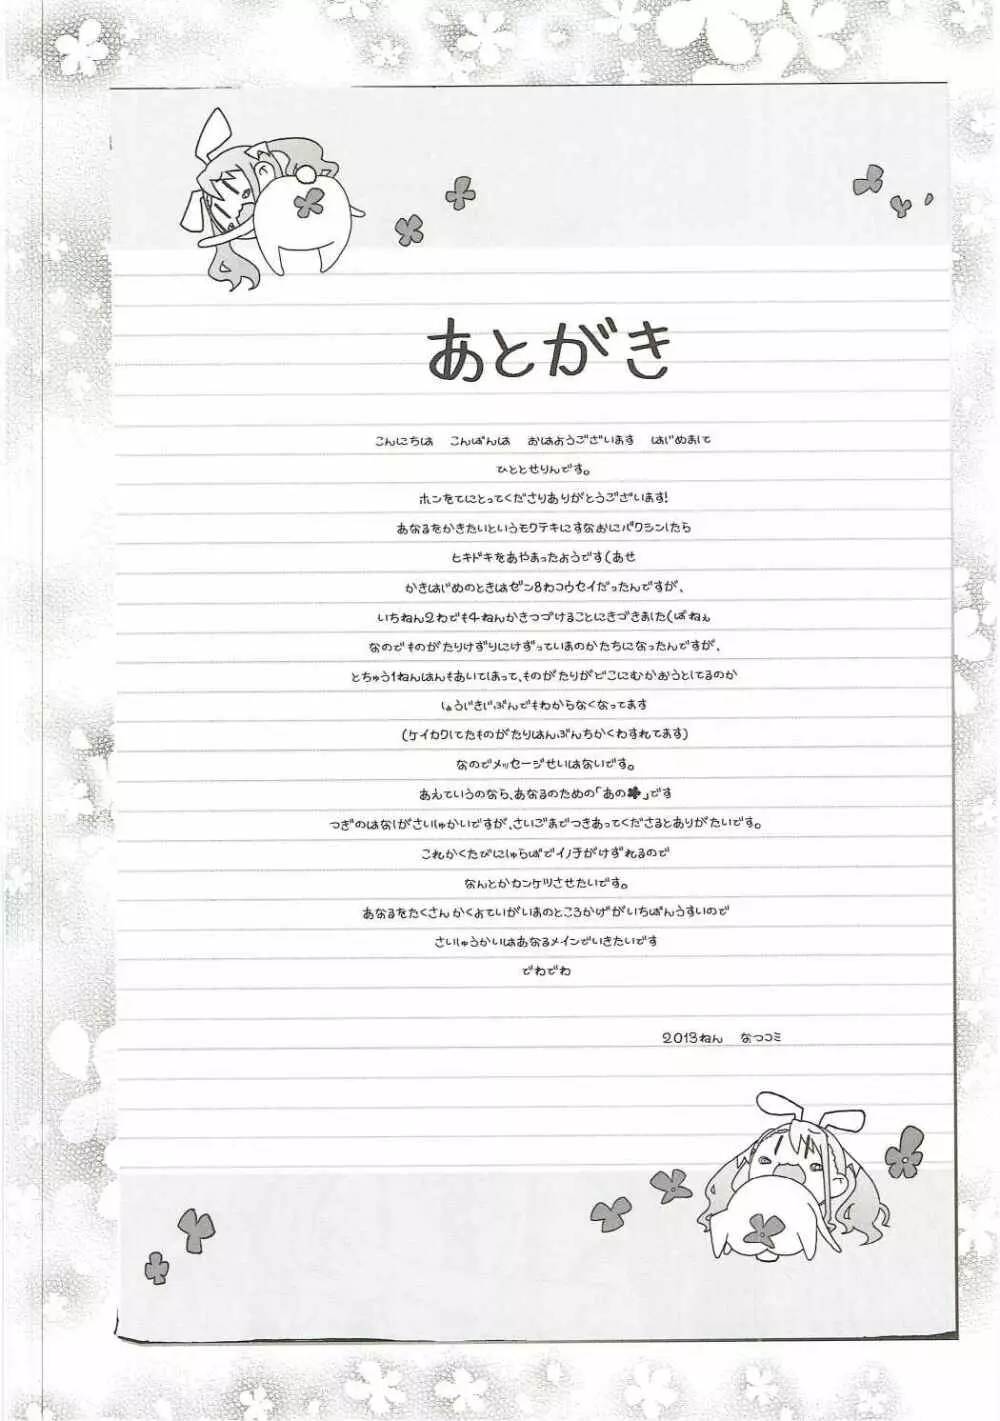 あとがき
こんにちは　こんばんは　おはようございます　はじめまして
ひととせりんです。
ホンをてにとってくださりありがとうございます!
あなるをかきたいというモクテキにすなおにバクシンしたら
ヒキドキをあやまったようです(あせ
かきはじめのときはゼン8わコウセイだったんですが、
いちねん2わでも4ねんかきつづけることにきづきました(ばねぇ
なのでものがたりけずりにけずっていまのかたちになったんですが、
とちゅう1ねんはんもあいてしまって、ものがたりがどこにむかおうとしてるのか
しょうじきじぶんでもわからなくなってます
(ケイカクしてたものがたりはんぶんちかくわすれてます)
なのでメッセージせいはないです。
あえていうのなら、あなるのための「あの✤」です
つぎのはなしがさいしゅかいですが、さいごまでつきあってくださるとありがたいです。
これかくたびにしゅらばでイノチがけずれるので
なんとかカンケツさせたいです。
あなるをたくさん かくよていがいまのところかげがいちばんうすいので
さいしゅうかいはあなるメインでいきたいです
でわでわ
2013ねん　なつコミ